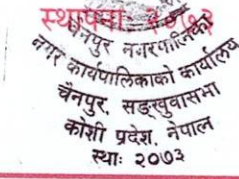 स्थापना २०७३
चैनपुर नगरपालिका
नगर कार्यपालिकाको कार्यालय
चैनपुर, सङ्खुवासभा
कोशी प्रदेश, नेपाल
स्थाः २०७३